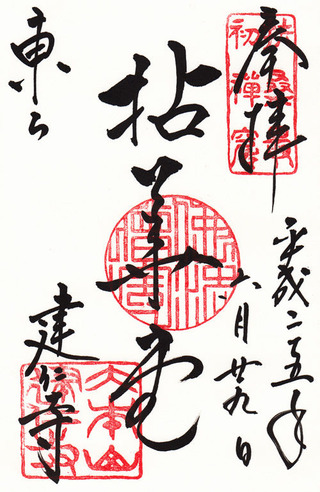 奉拝
扶桑最
初禪窟
平成二五年
六月廿九日
拈華堂
東山
建仁寺
大本山